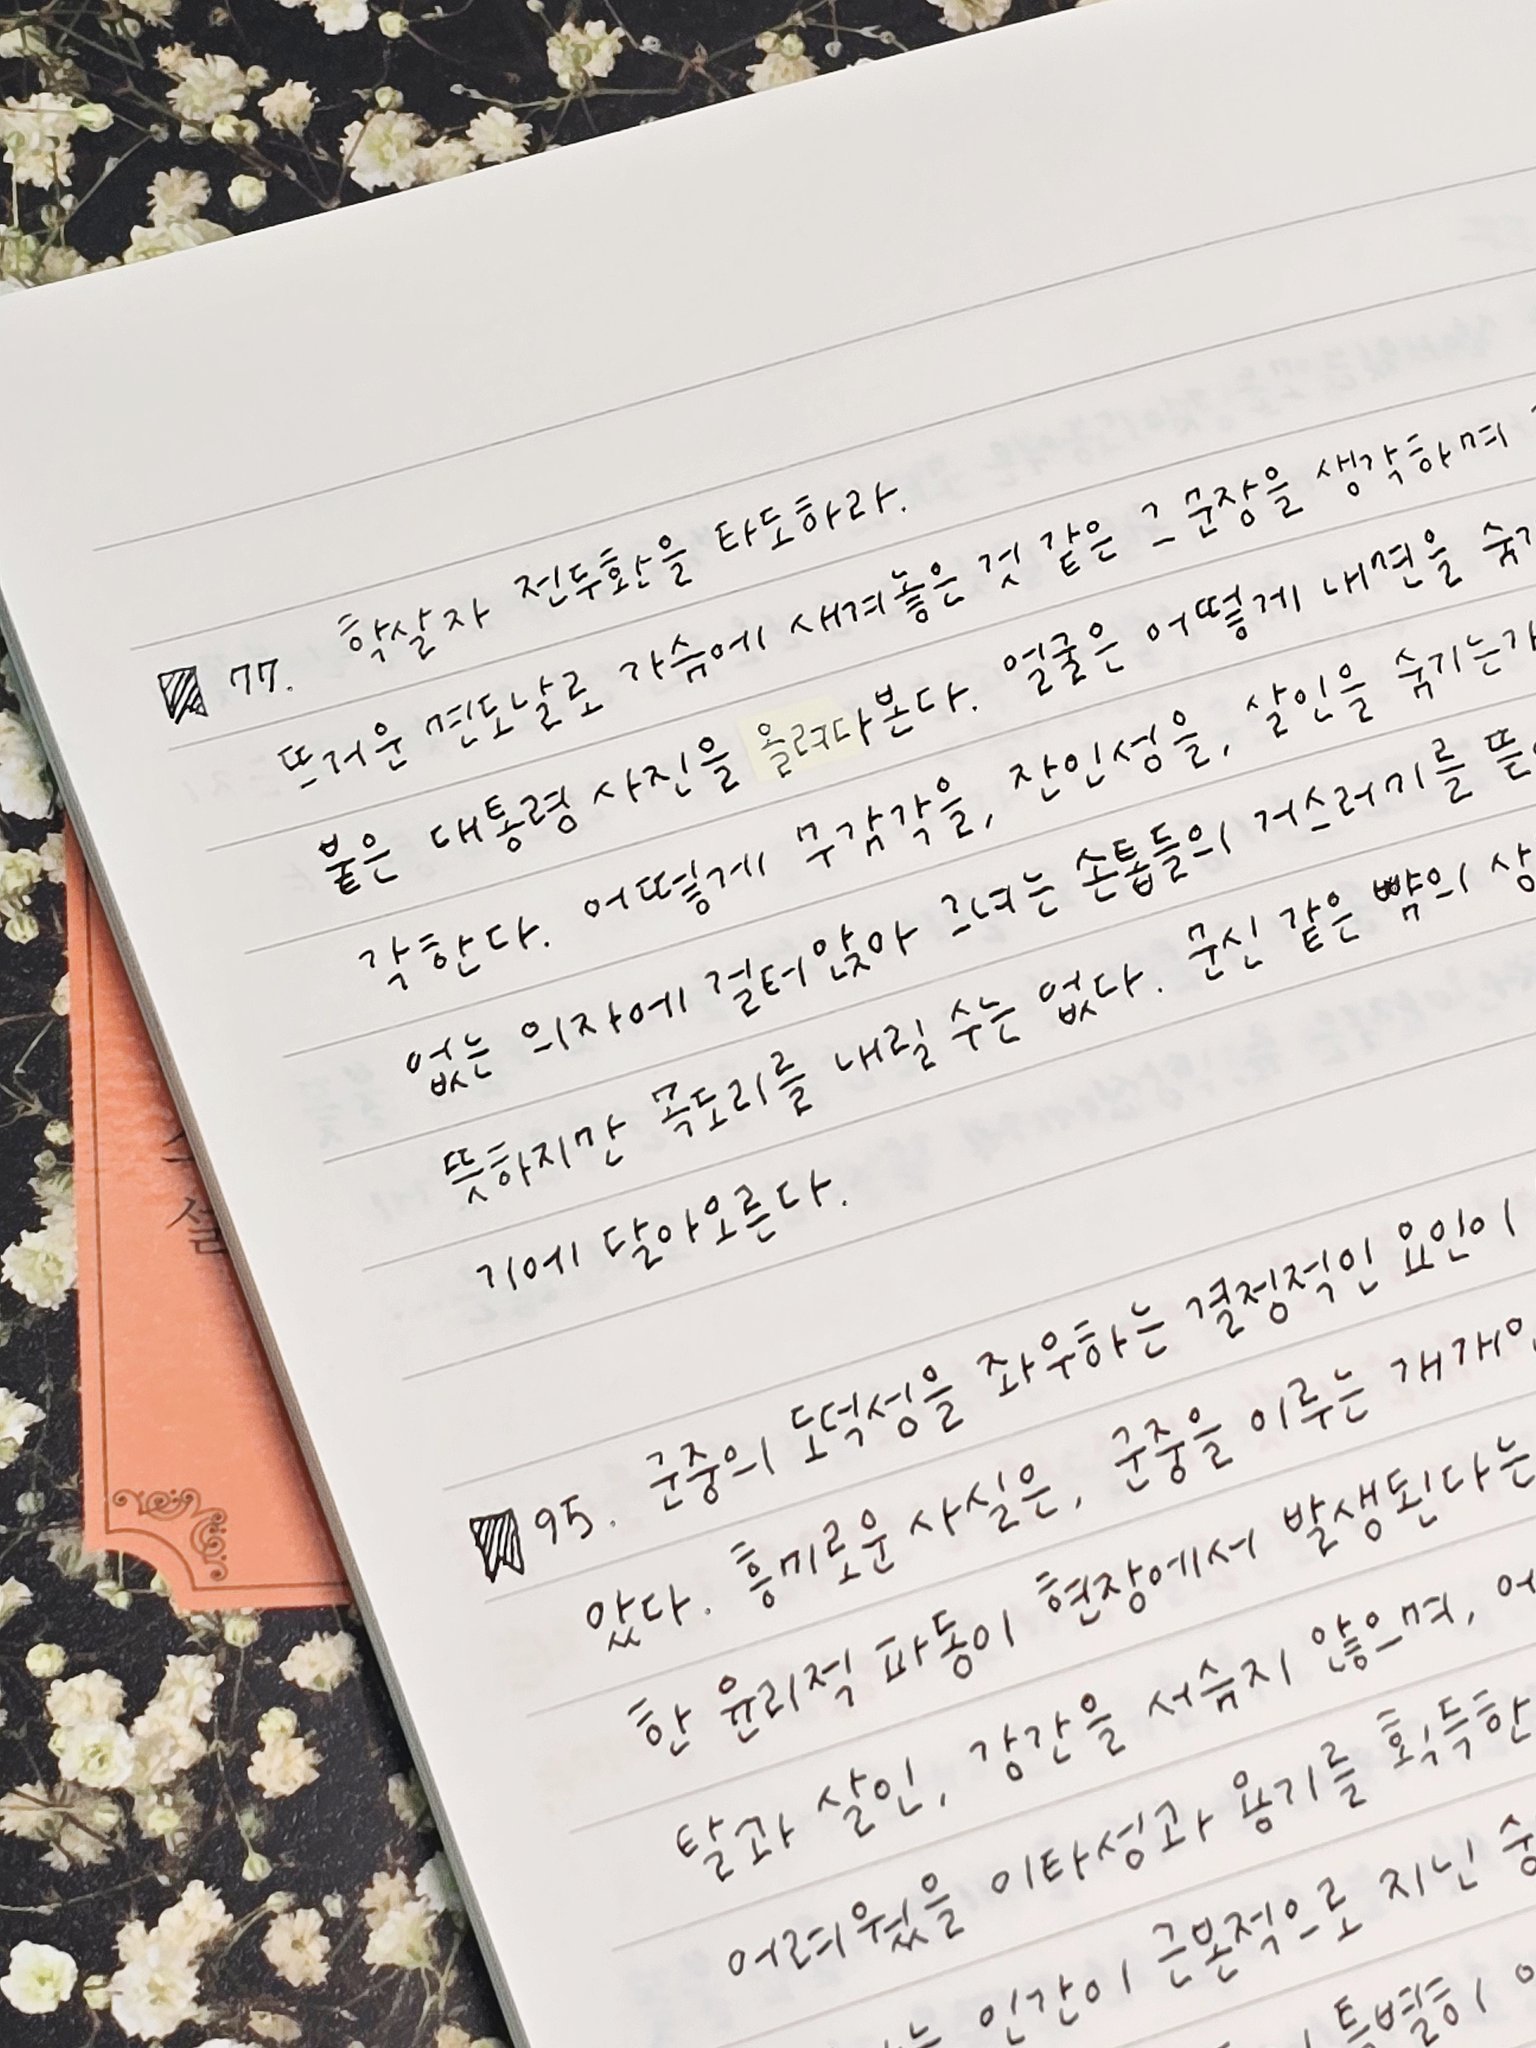 77. 학살자 전두환을 타도하라.
뜨거운 면도날로 가슴에 새겨놓은 것 같은 그 문장을 생각하며
붙은 대통령 사진을 올려다본다. 얼굴은 어떻게 내면을 숨기
각한다. 어떻게 무감각을, 잔인성을, 살인을 숨기는가
없는 의자에 걸터앉아 그녀는 손톱들의 거스러미를 뜯
뜻하지만 목도리를 내릴 수는 없다. 문신 같은 뺨의 상
기에 달아오른다.
95. 군중의 도덕성을 좌우하는 결정적인 요인이
았다. 흥미로운 사실은, 군중을 이루는 개개인
한 윤리적 파동이 현장에서 발생된다는
탈과 살인, 강간을 서슴지 않으며, 어
어려웠을 이타성과 용기를 획득한
는 인간이 근본적으로 지닌 숭
특별히
설